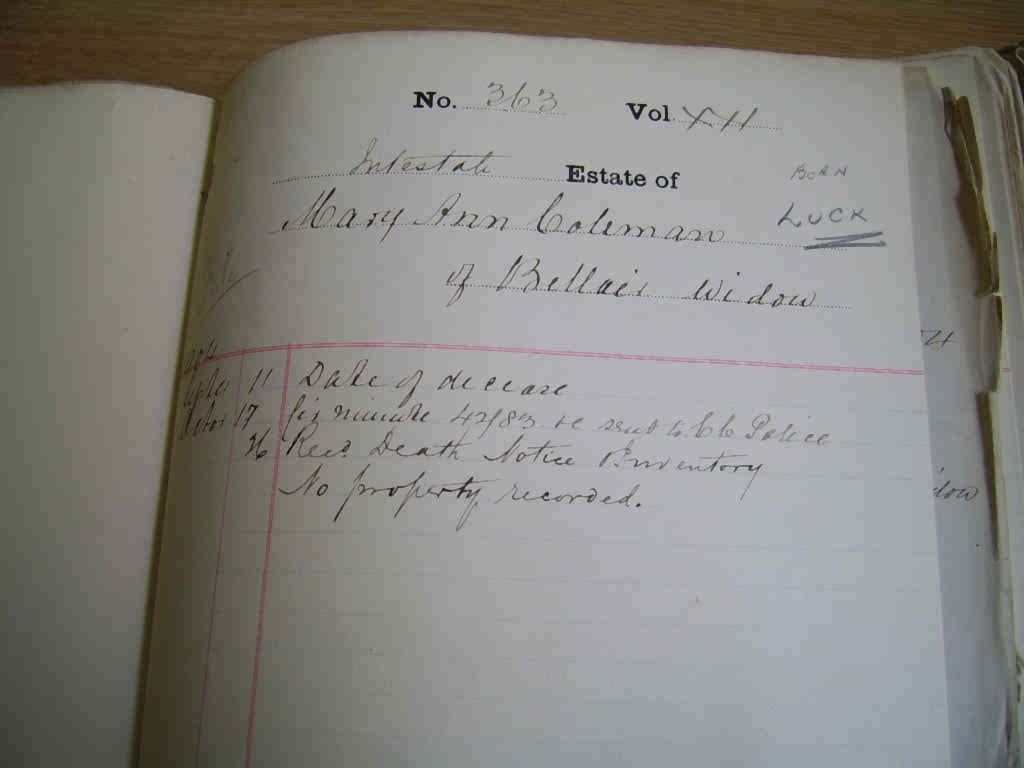 No. 363 Vol. XII
Intestate Estate of
BORN
LUCK
Mary Ann Coleman
of Bellair Widow
11 Date of decease
17 minute 42/83 sent to CC Police
26 Recd. Death Notice & Inventory
No property recorded.